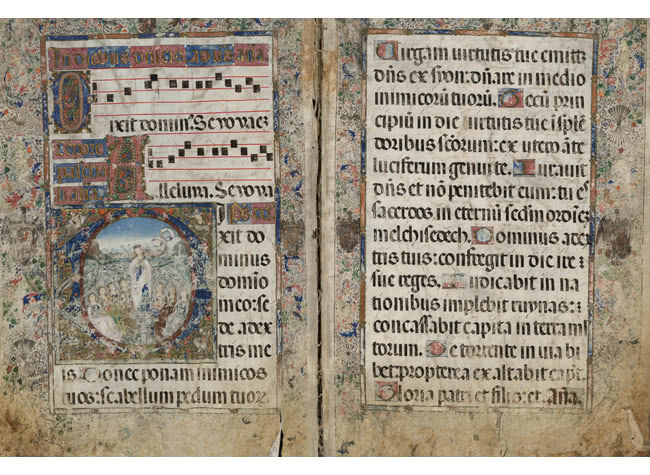 In diebus dnicis
Dixit domin⁹. Sevovae
Tempore
paschali
Alleluia. Sevova
Dixit do
minus
domio
meo: se
de adex
tris me
is: Donec ponam inimicos
tuos: scabellum pedum tuorū
Virgam uirtutis tue emittet
dñs ex syon: dñare in medio
inimicorū tuorū. Tecū prin
cipiū in die uirtutis tue ī splē
doribus sc̄orum: ex utero āte
luciferum genui te. Iurauit
dñs et nō penitebit eum: tu es
sacerdos in eternū scdm ordinē
melchisedech. Dominus adex
tris tuis: confregit in die ire
sue reges. Iudicabit in na
tionibus implebit ruynas:
concassabit capita in terra ml
torum. De torrente in uia bi
bet: propterea exaltabit capt.
Gloria patri et filio: et. Aña.